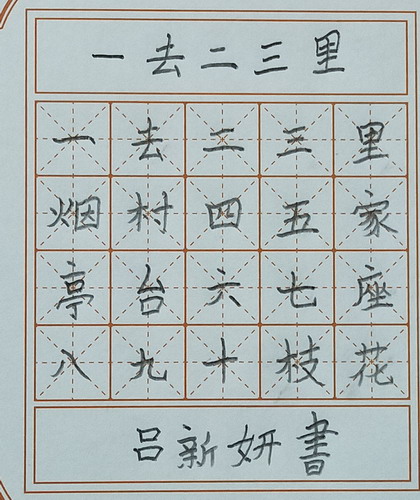 一去二三里
一去二三里
烟村四五家
亭台六七座
八九十枝花
吕新妍書